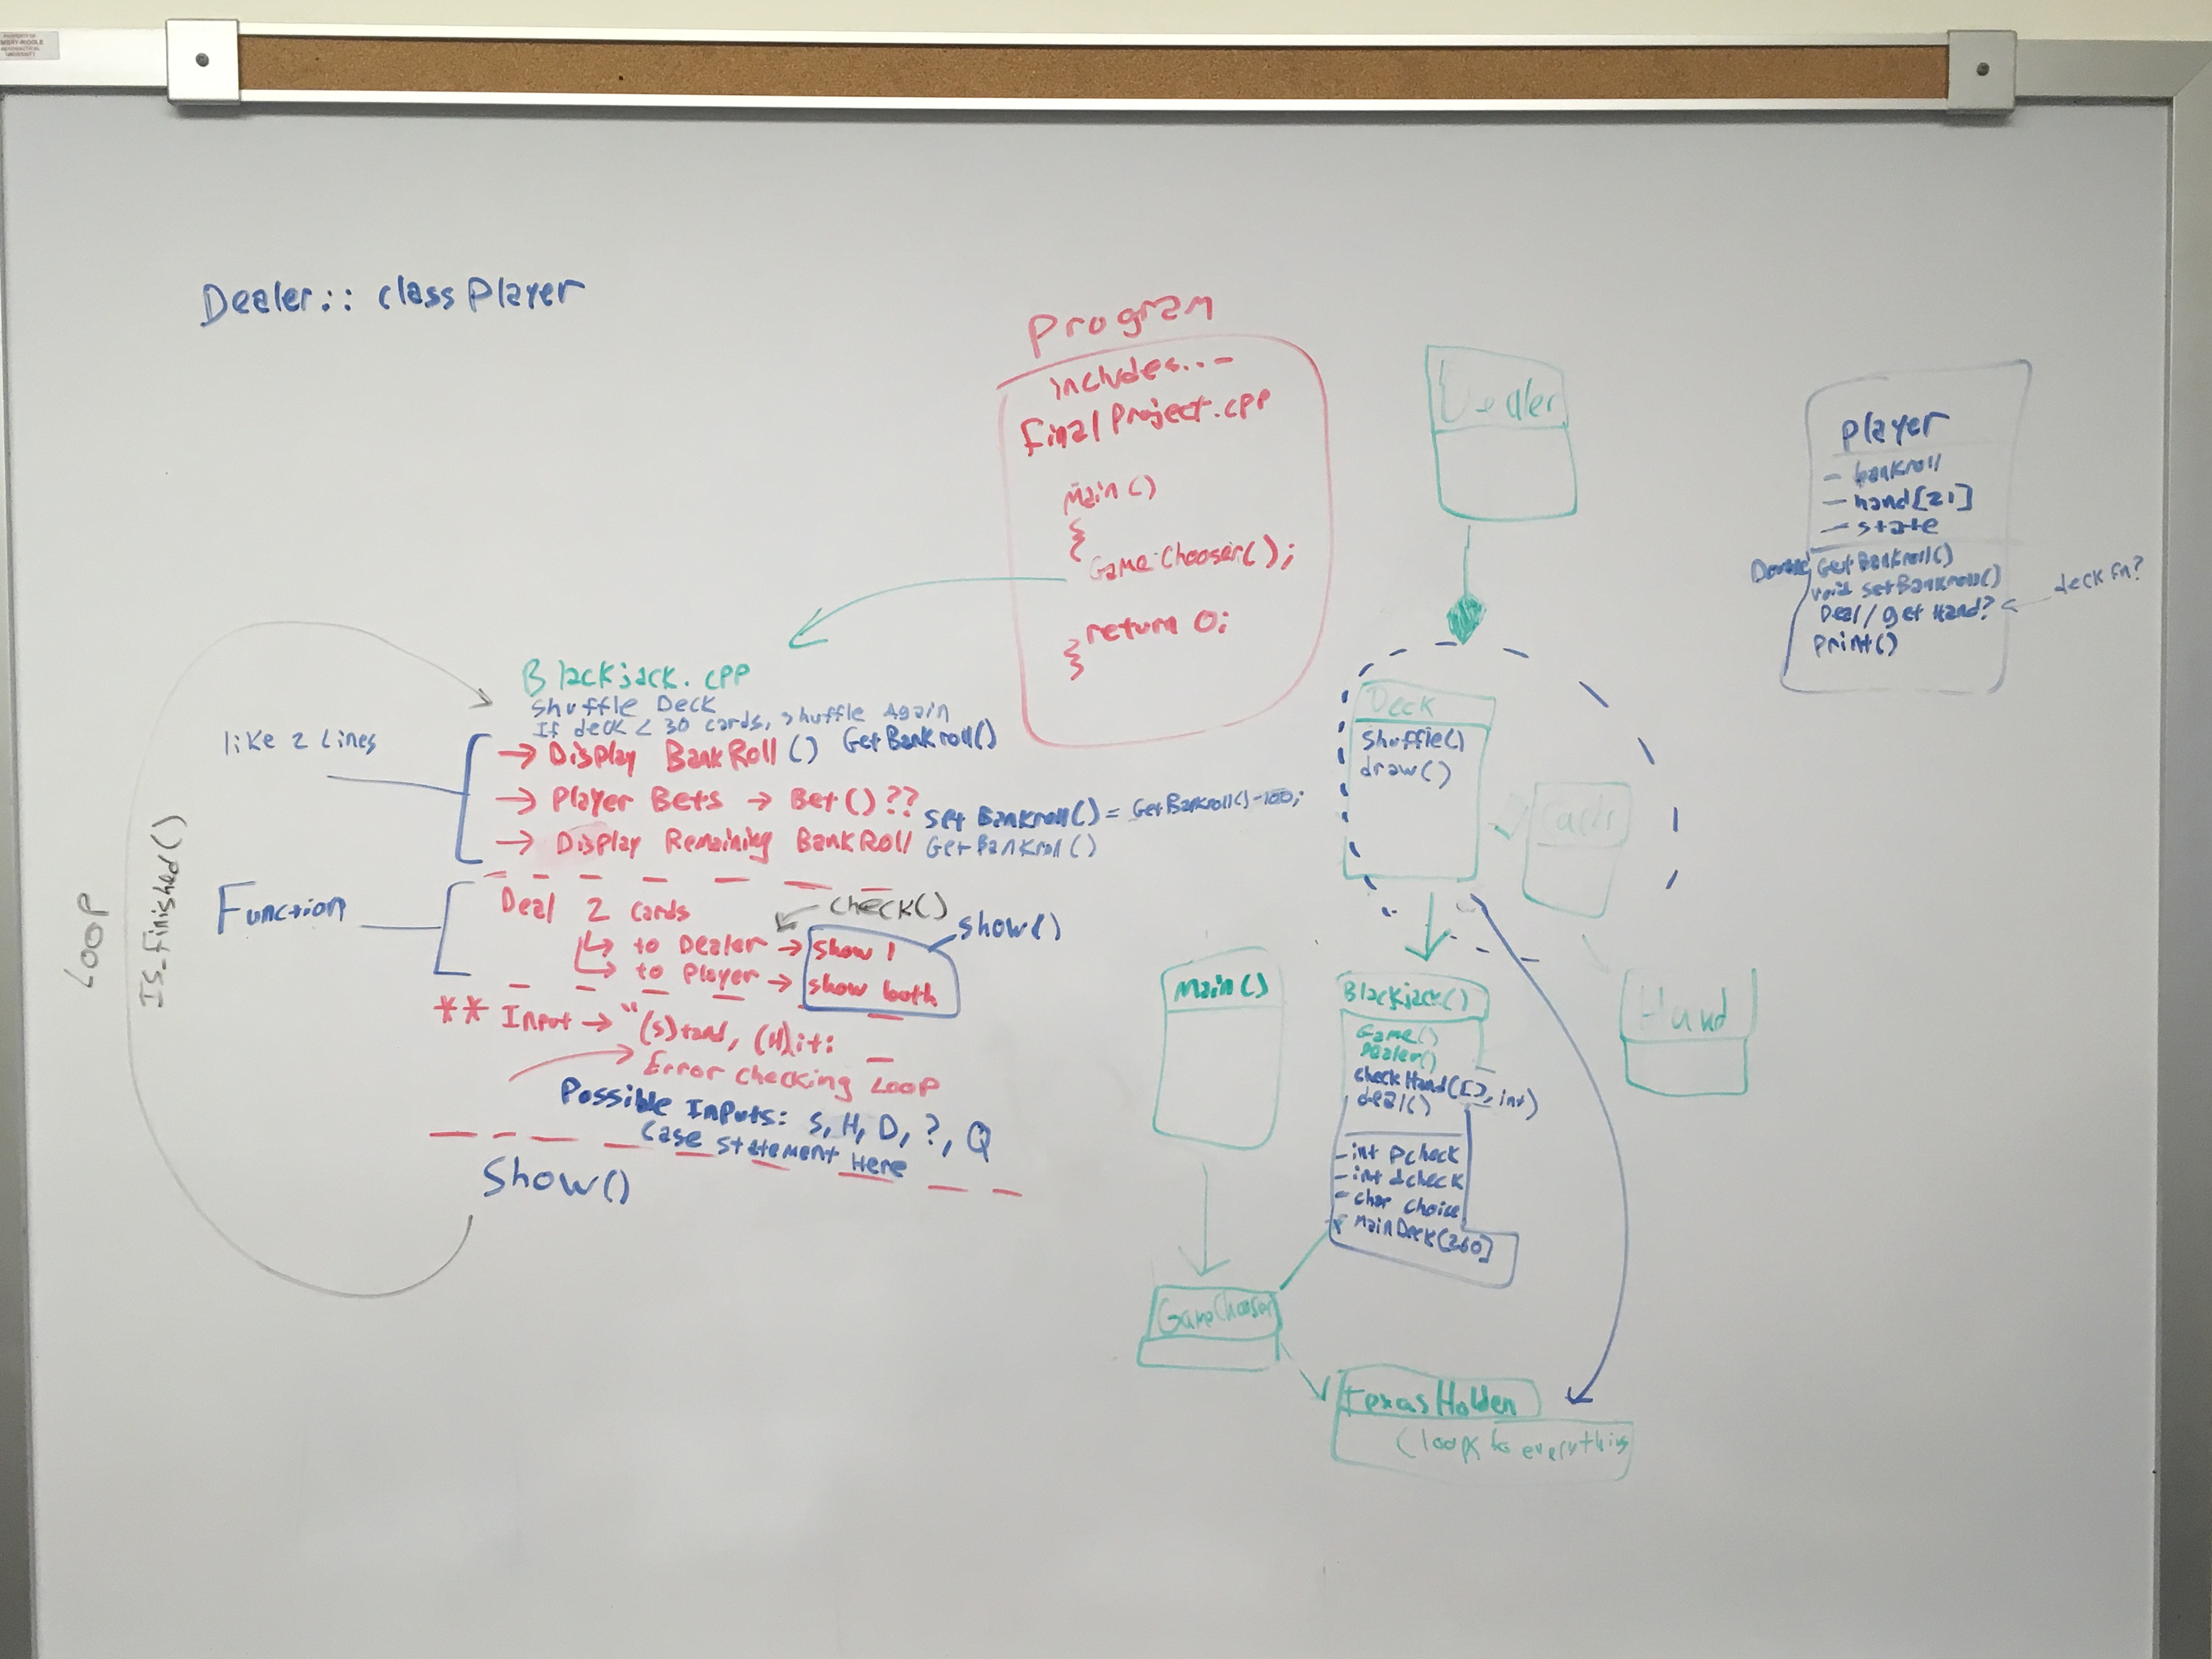 PROPERTY OF
EMBRY-RIDDLE
AERONAUTICAL
UNIVERSITY
Dealer:: class Player
Program
includes...
Final Project.cpp
Main()
{
GameChooser();
return 0;
}
Blackjack.cpp
Shuffle Deck
If deck < 30 cards, shuffle Again
like 2 Lines
→ Display BankRoll () GetBankroll()
→ Player Bets → Bet() ?? set Bankroll() = GetBankroll()-100;
→ Display Remaining BankRoll GetBankroll()
Function
Deal 2 cards
check()
↳ to Dealer → show 1
show()
↳ to Player → show both
** Input → "(S)tand, (H)it:
Error checking Loop
Possible Inputs: S, H, D, ?, Q
Case Statement Here
Show()
Loop
IS_Finished()
Dealer
Deck
shuffle()
draw()
Hand
Main()
Blackjack()
Game()
Dealer()
checkHand([], int)
deal()
- int Pcheck
- int dcheck
- char choice
MainDeck[260]
GameChooser
Texas Holden
(look to everything
Player
- bankroll
- hand[21]
- state
Double GetBankroll()
void setBankroll()
Deal/get Hand? ← deck fn?
Print()